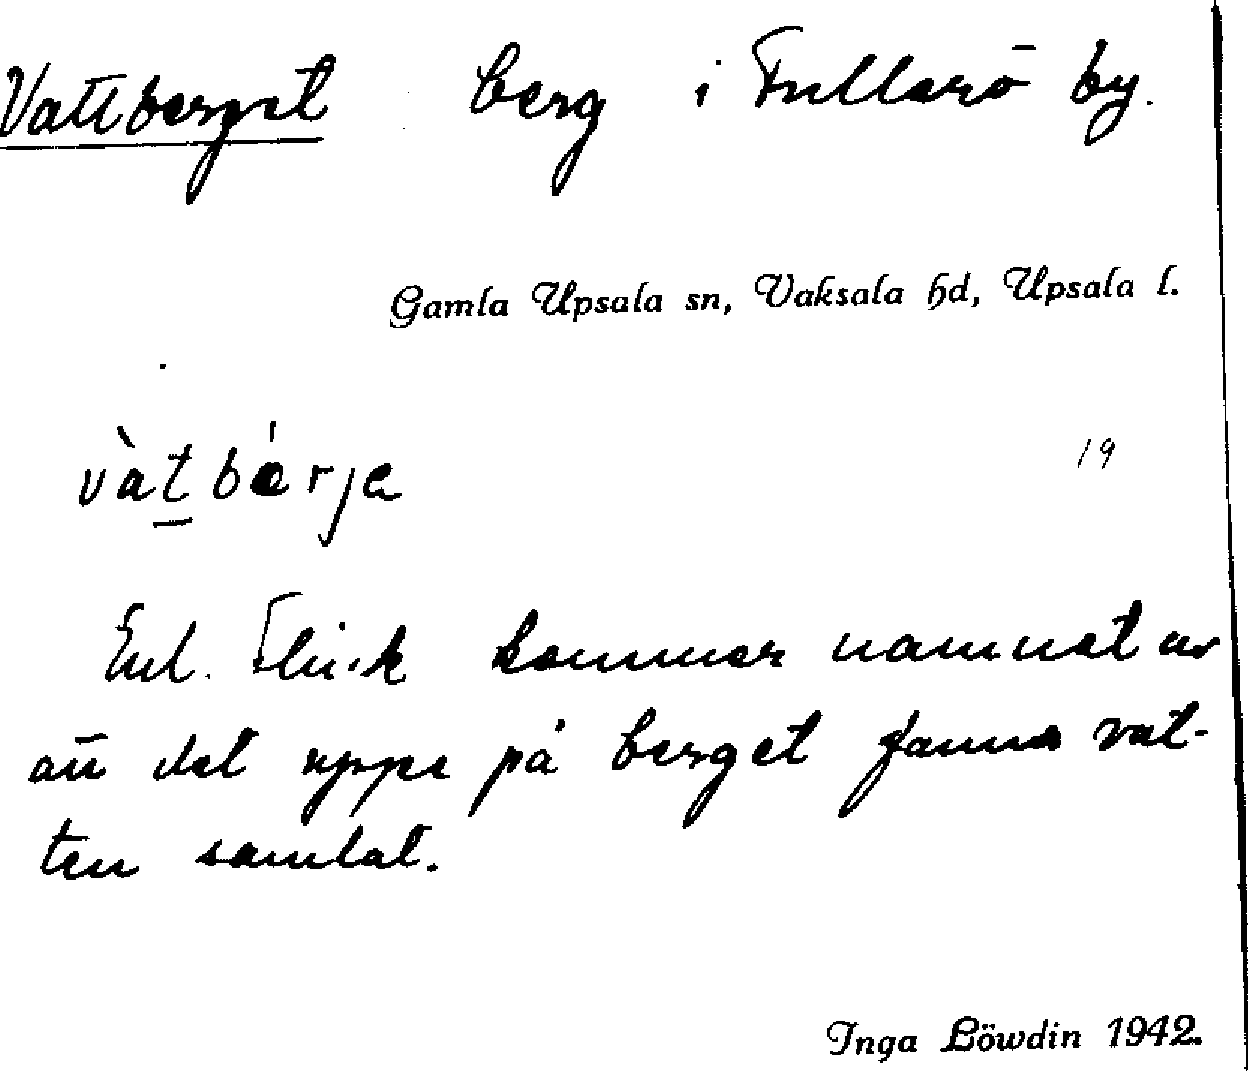 Vattberget berg i Fullerö by.
Gamla Upsala sn, Vaksala hd, Upsala l.
vàt bárja
19
Enl. Flink kommer namnet av
att det uppe på berget fanns vat-
ten samlat.
Inga Löwdin 1942.